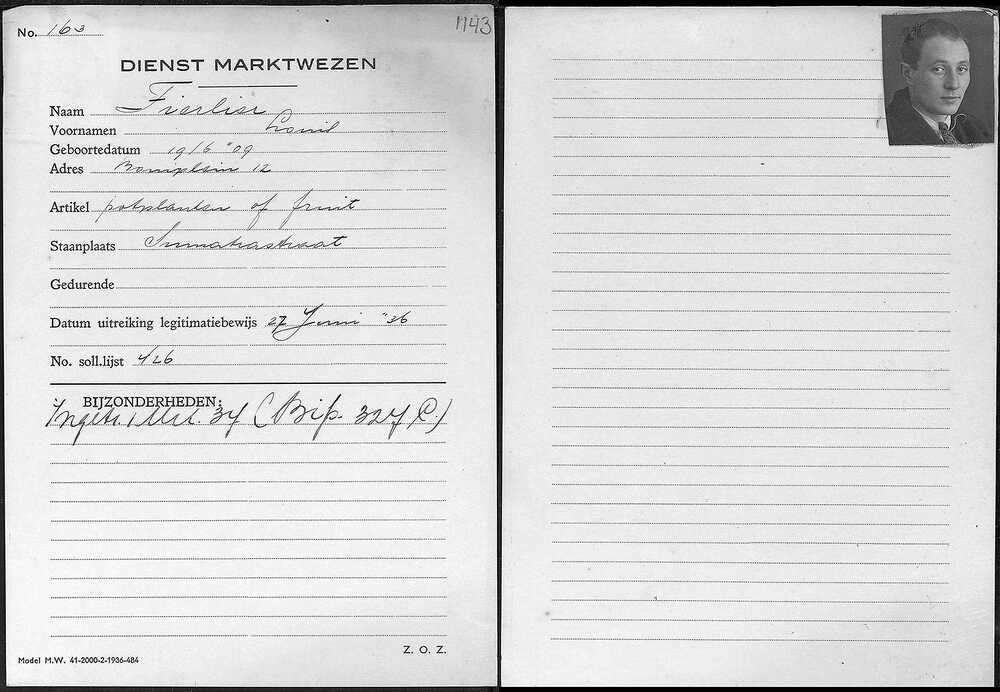 No. 163
1143
DIENST MARKTWEZEN
Naam Fierlier
Voornamen Louis
Geboortedatum 19/6 "09
Adres 12
Artikel potplanten of fruit
Staanplaats Sumatrastraat
Gedurende
Datum uitreiking legitimatiebewijs 27 Juni "36
No. soll.lijst 426
BIJZONDERHEDEN:
Ingetr. 1 Mrt. 37 (Bijs. 327 C.)
Z. O. Z.
Model M.W. 41-2000-2-1936-484